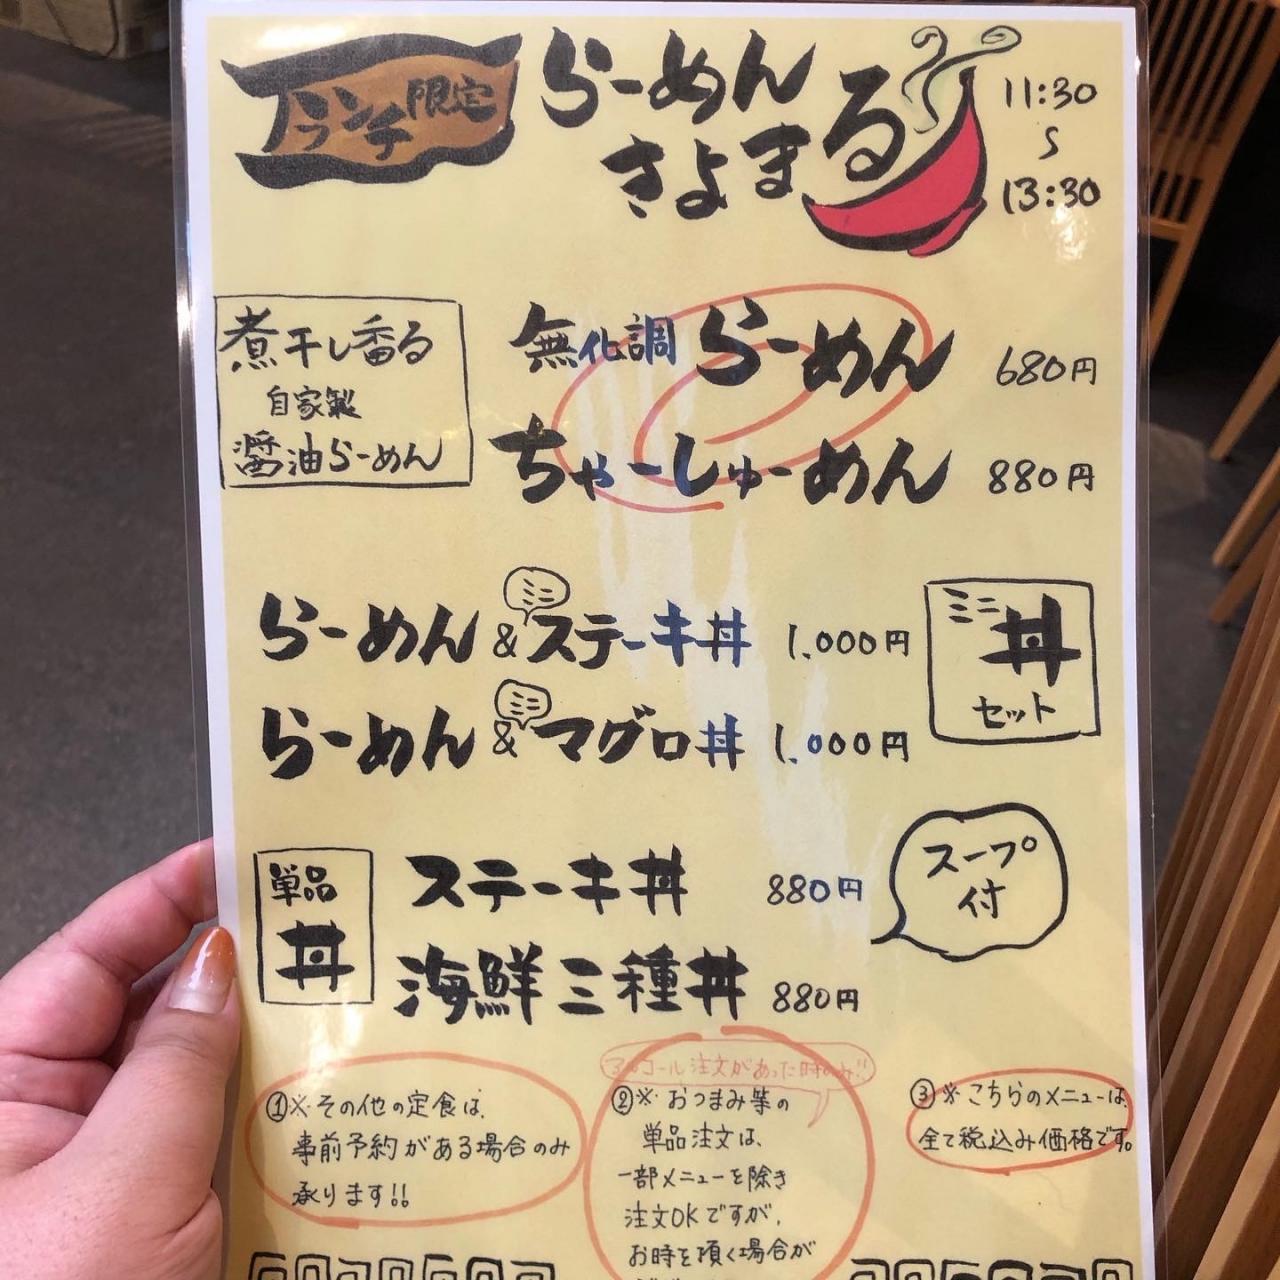 ランチ限定
らーめん
きよまる
11:30
〜
13:30
煮干し香る
自家製
醤油らーめん
無化調 らーめん 680円
ちゃーしゅーめん 880円
らーめん & ミニ ステーキ丼 1.000円
らーめん & ミニ マグロ丼 1.000円
ミニ
丼
セット
単品
丼
ステーキ丼 880円
海鮮三種丼 880円
スープ
付
①※その他の定食は、
事前予約がある場合のみ
承ります!!
アルコール注文があった時のみ!!
②※おつまみ等の
単品注文は、
一部メニューを除き
注文OKですが、
お時を頂く場合が
③※こちらのメニューは、
全て税込み価格です。